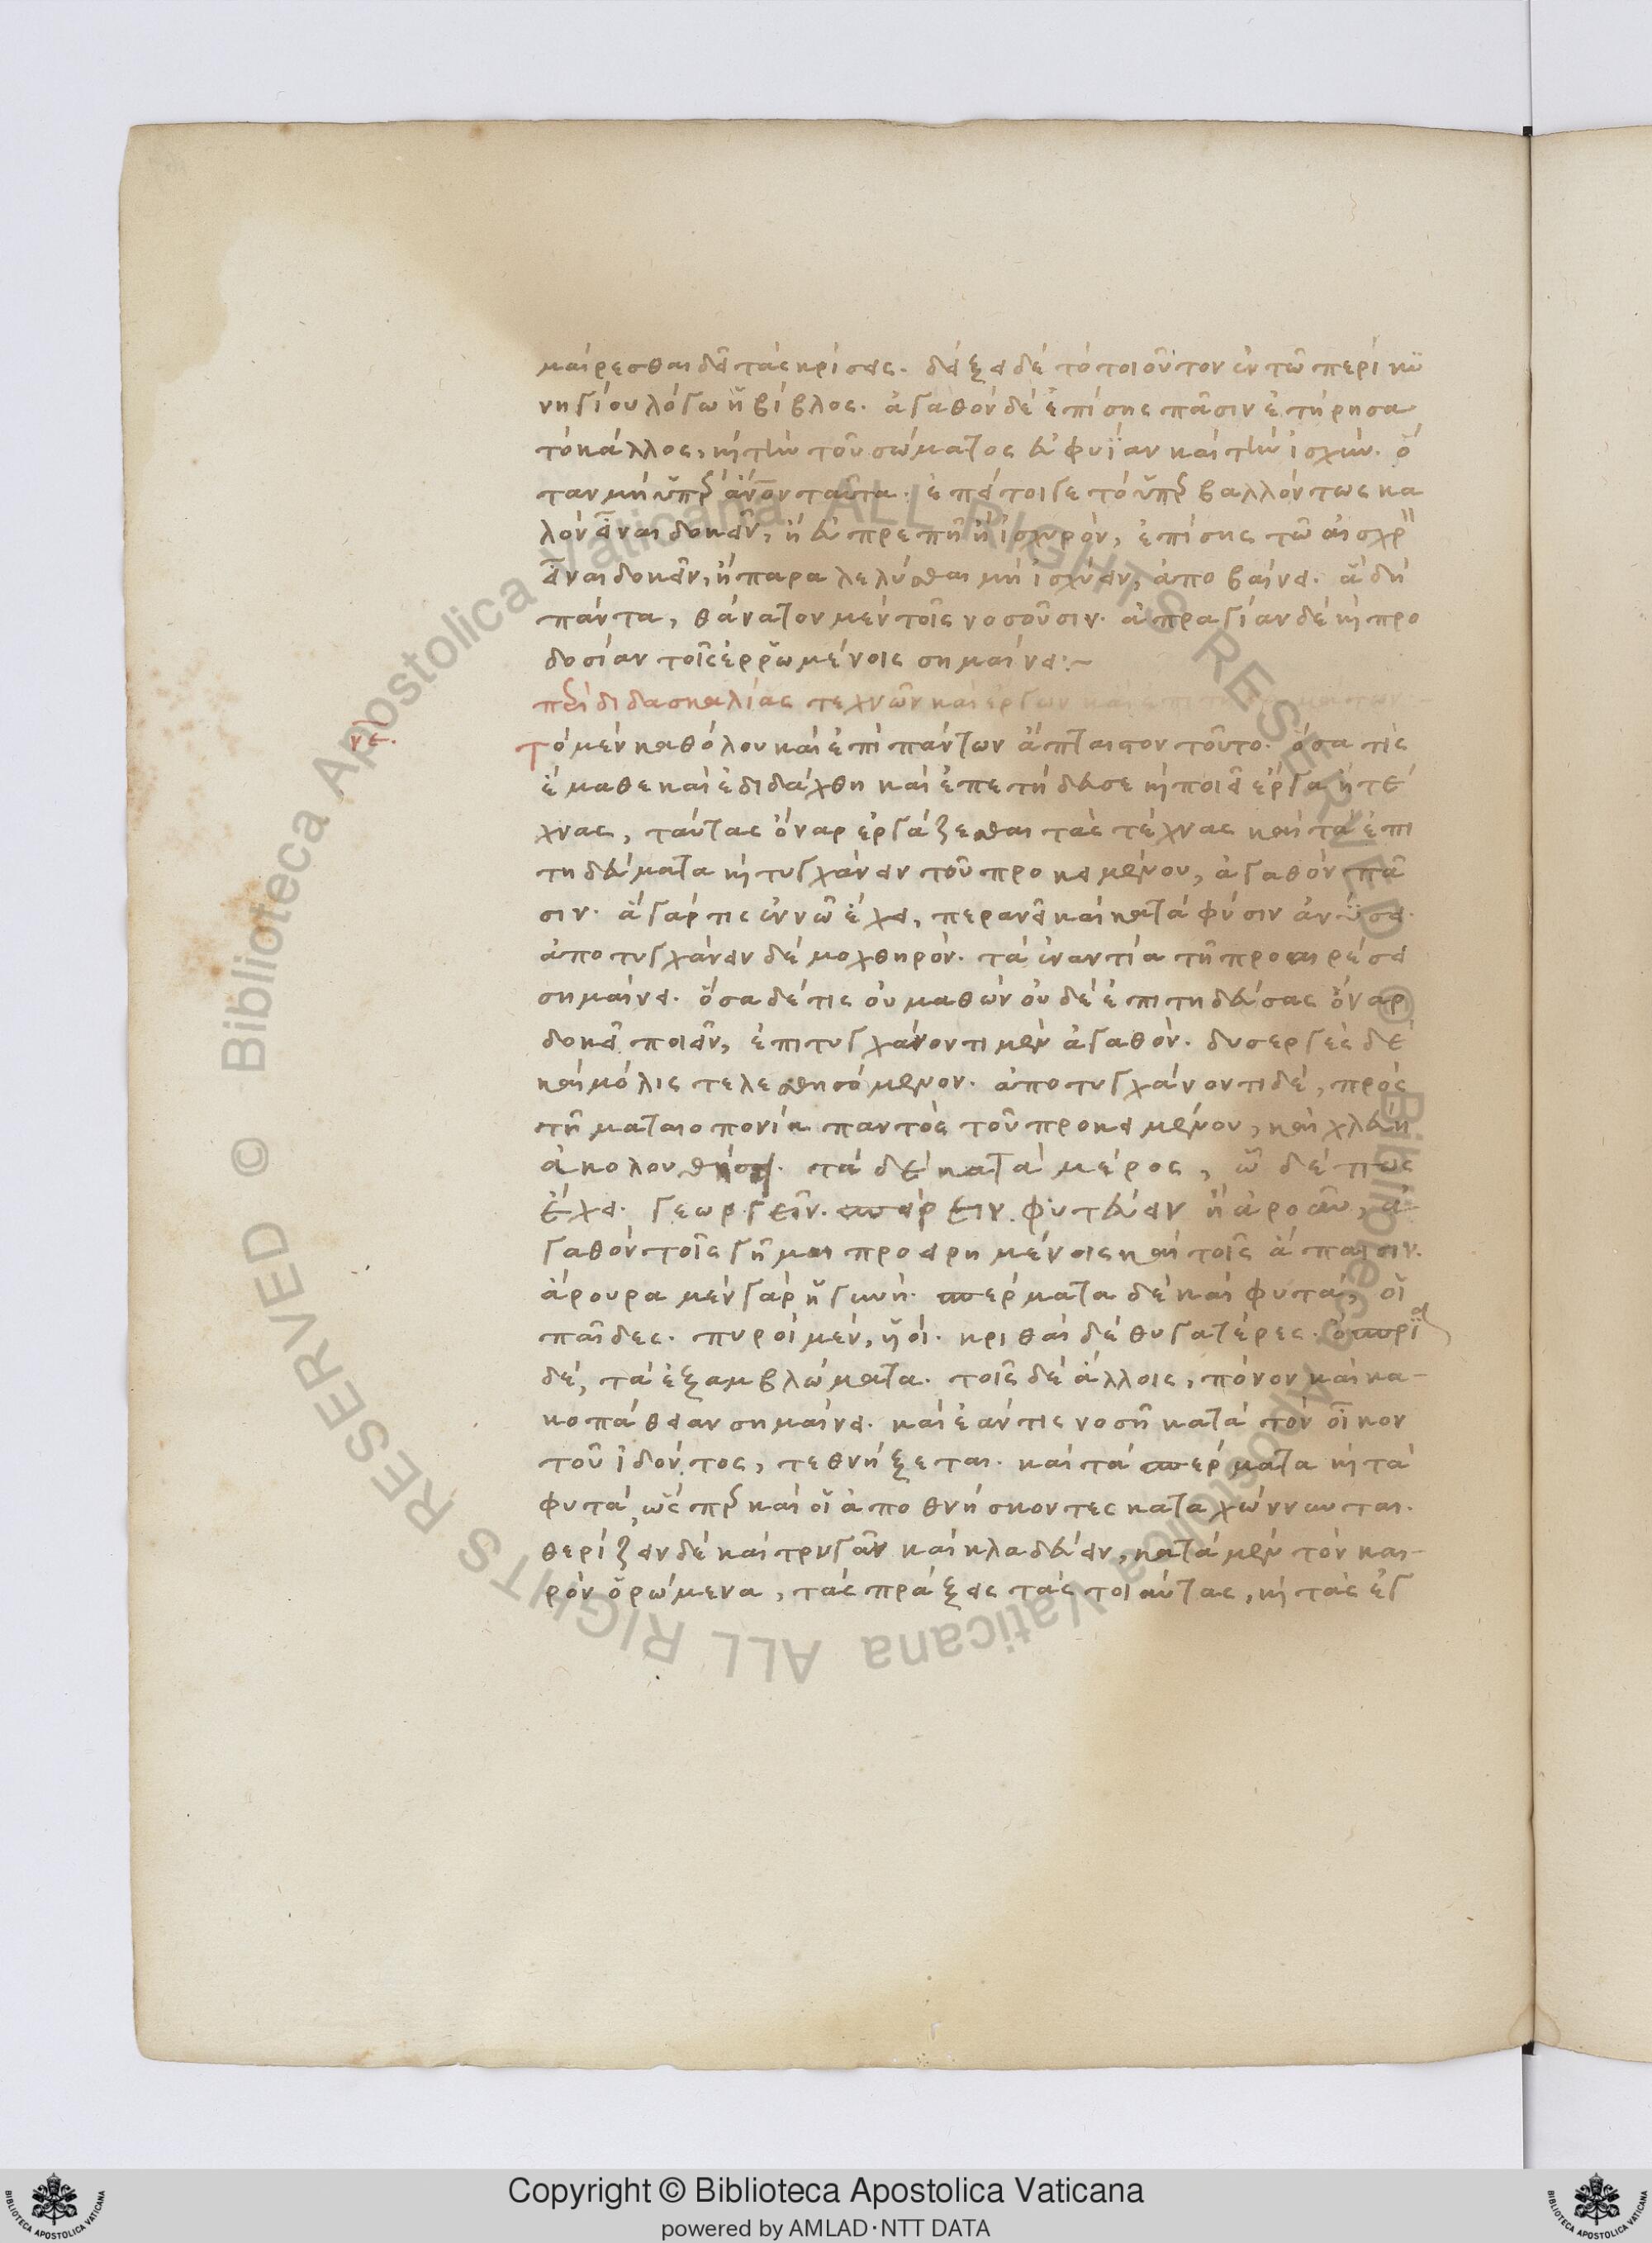 μαίρεσθαι δεῖ τὰς κρίσεις. δείξει δὲ τὸ τοιοῦτον ἐν τῶ περὶ κυ
νηγίου λόγω ἡ βίβλος. ἀγαθὸν δὲ ἐπίσης πᾶσιν ἐτήρησα
τὸ κάλλος, κὴ τὴν τοῦ σώματος εὐφυΐαν καὶ τὴν ἰσχύν. ὅ
ταν μὴ ὑπὲρ ἄνον ταῦτα. ἐπεί τοιγε τὸ ὑπερβαλλόντως κα
λὸν εἶναι δοκεῖν, ἢ εὐπρεπῆ ἢ ἰσχυρὸν, ἐπίσης τῶ αἰσχρ
εἶναι δοκεῖν, ἢ παραλελύσθαι μὴ ἰσχύειν, ἀποβαίνει. ἃ δὴ
πάντα, θάνατον μὲν τοῖς νοσοῦσιν. ἀπραγίαν δὲ κὴ προ
δοσίαν τοῖς ἐρρωμένοις σημαίνει:~
περὶ διδασκαλίας τεχνῶν καὶ ἔργων καὶ ἐπιτηδευμάτων
νε.
Τὸ μὲν καθόλου καὶ ἐπὶ πάντων ἄπταιστον τοῦτο. ὅσα τὶς
ἔμαθε καὶ ἐδιδάχθη καὶ ἐπετήδευσε κὴ ποιεῖ ἔργα ἢ τέ
χνας, ταύτας ὄναρ ἐργάζεσθαι τὰς τέχνας καὶ τὰ ἐπι
τηδεύματα κὴ τυγχάνειν τοῦ προκειμένου, ἀγαθὸν πᾶ
σιν. ἃ γάρ τις ἐν νῶ ἔχει, περανεῖ καὶ κατὰ φύσιν ἀνύσει.
ἀποτυγχάνειν δὲ μοχθηρόν. τὰ ἐναντία τῆ προαιρέσει
σημαίνει. ὅσα δέ τις οὐ μαθὼν οὐδὲ ἐπιτηδεύσας ὄναρ
δοκεῖ ποιεῖν, ἐπιτυγχάνοντι μὲν ἀγαθόν. δυσεργὲς δὲ
καὶ μόλις τελεσθησόμενον. ἀποτυγχάνοντι δὲ, πρὸς
τῆ ματαιοπονία παντὸς τοῦ προκειμένου, καὶ χλεύη
ἀκολουθήσει. τὰ δὲ κατὰ μέρος, ὧδέ πως
ἔχει. γεωργεῖν. σπείρειν. φυτεύειν ἢ ἀροᾶν, ἀ
γαθὸν τοῖς γῆμαι προειρημένοις καὶ τοῖς ἄπαισιν.
ἄρουρα μὲν γὰρ ἡ γυνή. σπέρματα δὲ καὶ φυτά, οἱ
παῖδες. πυροὶ μὲν, ὑοί. κριθαὶ δὲ θυγατέρες. ὄσπρια
δὲ, τὰ ἐξαμβλώματα. τοῖς δὲ ἄλλοις, πόνον καὶ κα-
κοπάθειαν σημαίνει. καὶ ἐάν τις νοσῆ κατὰ τὸν οἶκον
τοῦ ἰδόντος, τεθνήξεται. καὶ τὰ σπέρματα κὴ τὰ
φυτά, ὥσπερ καὶ οἱ ἀποθνήσκοντες καταχώννυνται.
θερίζειν δὲ καὶ τρυγᾶν καὶ κλαδεύειν, κατὰ μὲν τὸν και-
ρὸν ὁρώμενα, τὰς πράξεις τὰς τοιαύτας, κὴ τὰς ἐγ
Copyright © Biblioteca Apostolica Vaticana
powered by AMLAD·NTT DATA
© Biblioteca Apostolica Vaticana ALL RIGHTS RESERVED
© Biblioteca Apostolica Vaticana ALL RIGHTS RESERVED
BIBLIOTECA APOSTOLICA VATICANA
BIBLIOTECA APOSTOLICA VATICANA